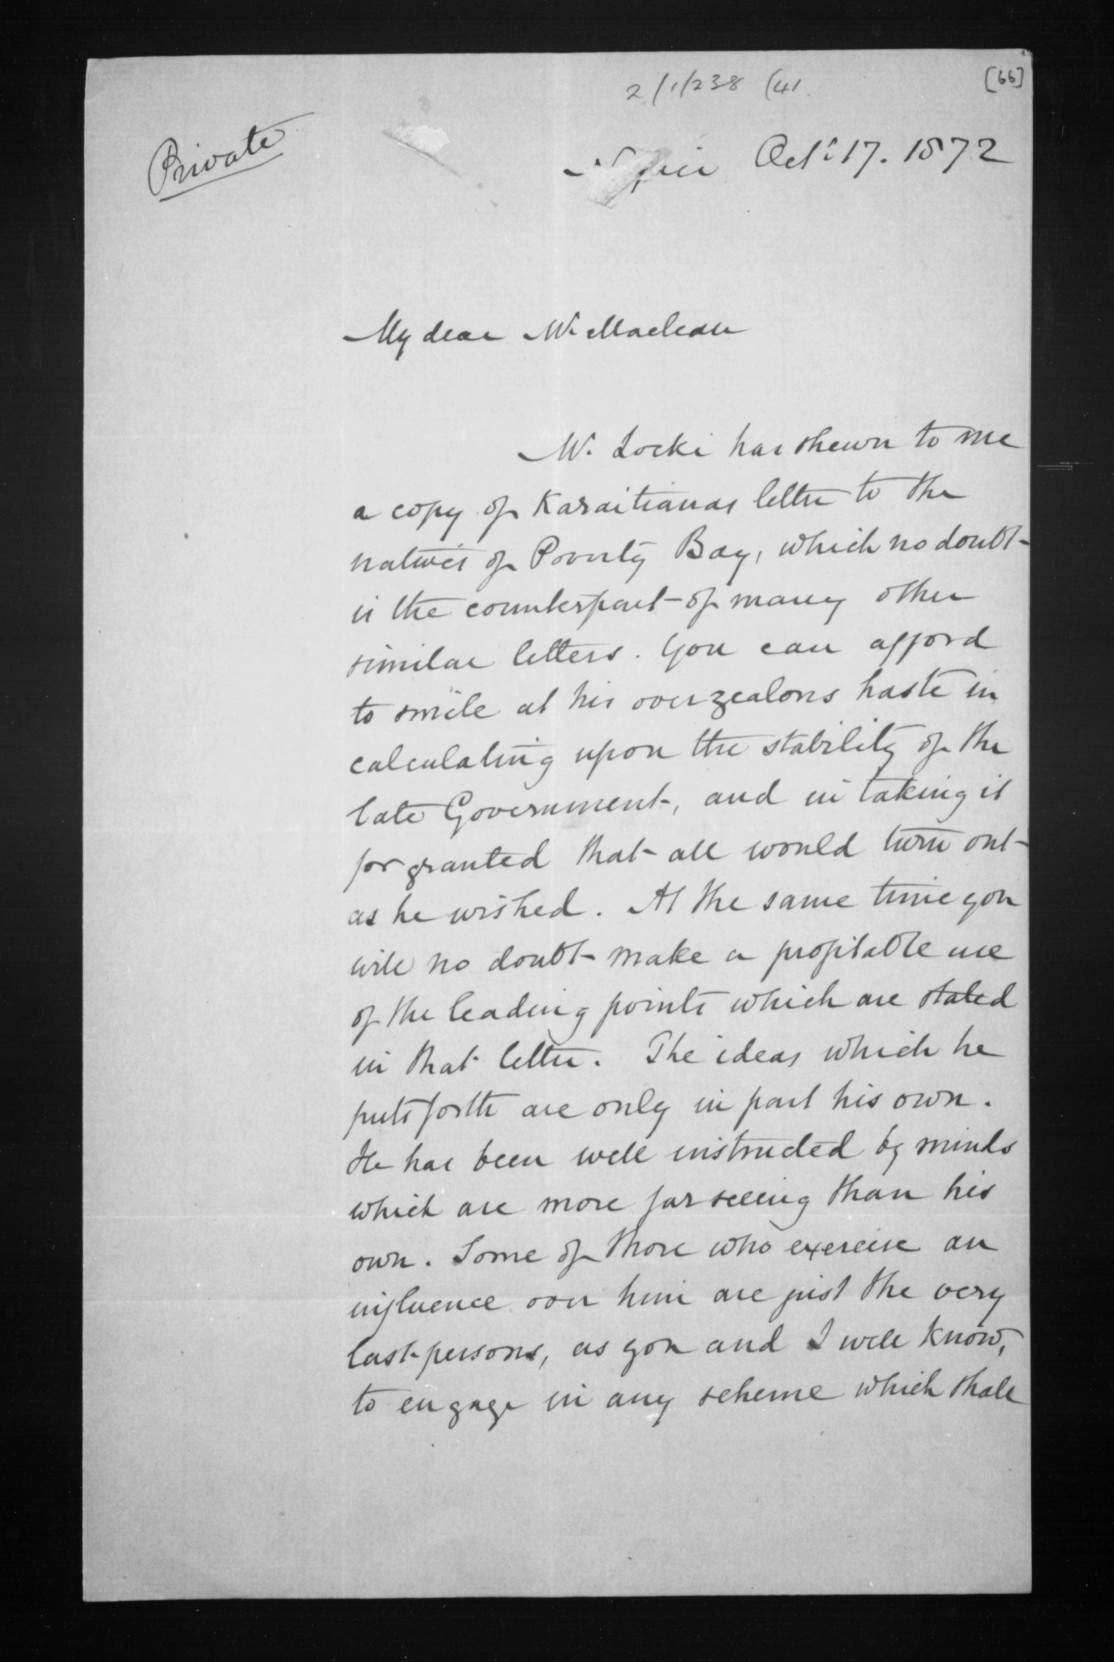 2/1/238 (41.
[66]
Private
Napier Oct. 17. 1872
My dear Mr. Maclean
Mr. Locke has shewn to me
a copy of Karaitianas letter to the
natives of Poverty Bay, which no doubt
is the counterpart of many other
similar letters. You can afford
to smile at his overzealous haste in
calculating upon the stability of the
late Government, and in taking it
for granted that all would turn out
as he wished. At the same time you
will no doubt make a profitable use
of the leading points which are stated
in that letter. The ideas which he
puts forth are only in part his own.
He has been well instructed by minds
which are more far seeing than his
own. Some of those who exercise an
influence over him are just the very
last persons, as you and I well know,
to engage in any scheme which shall